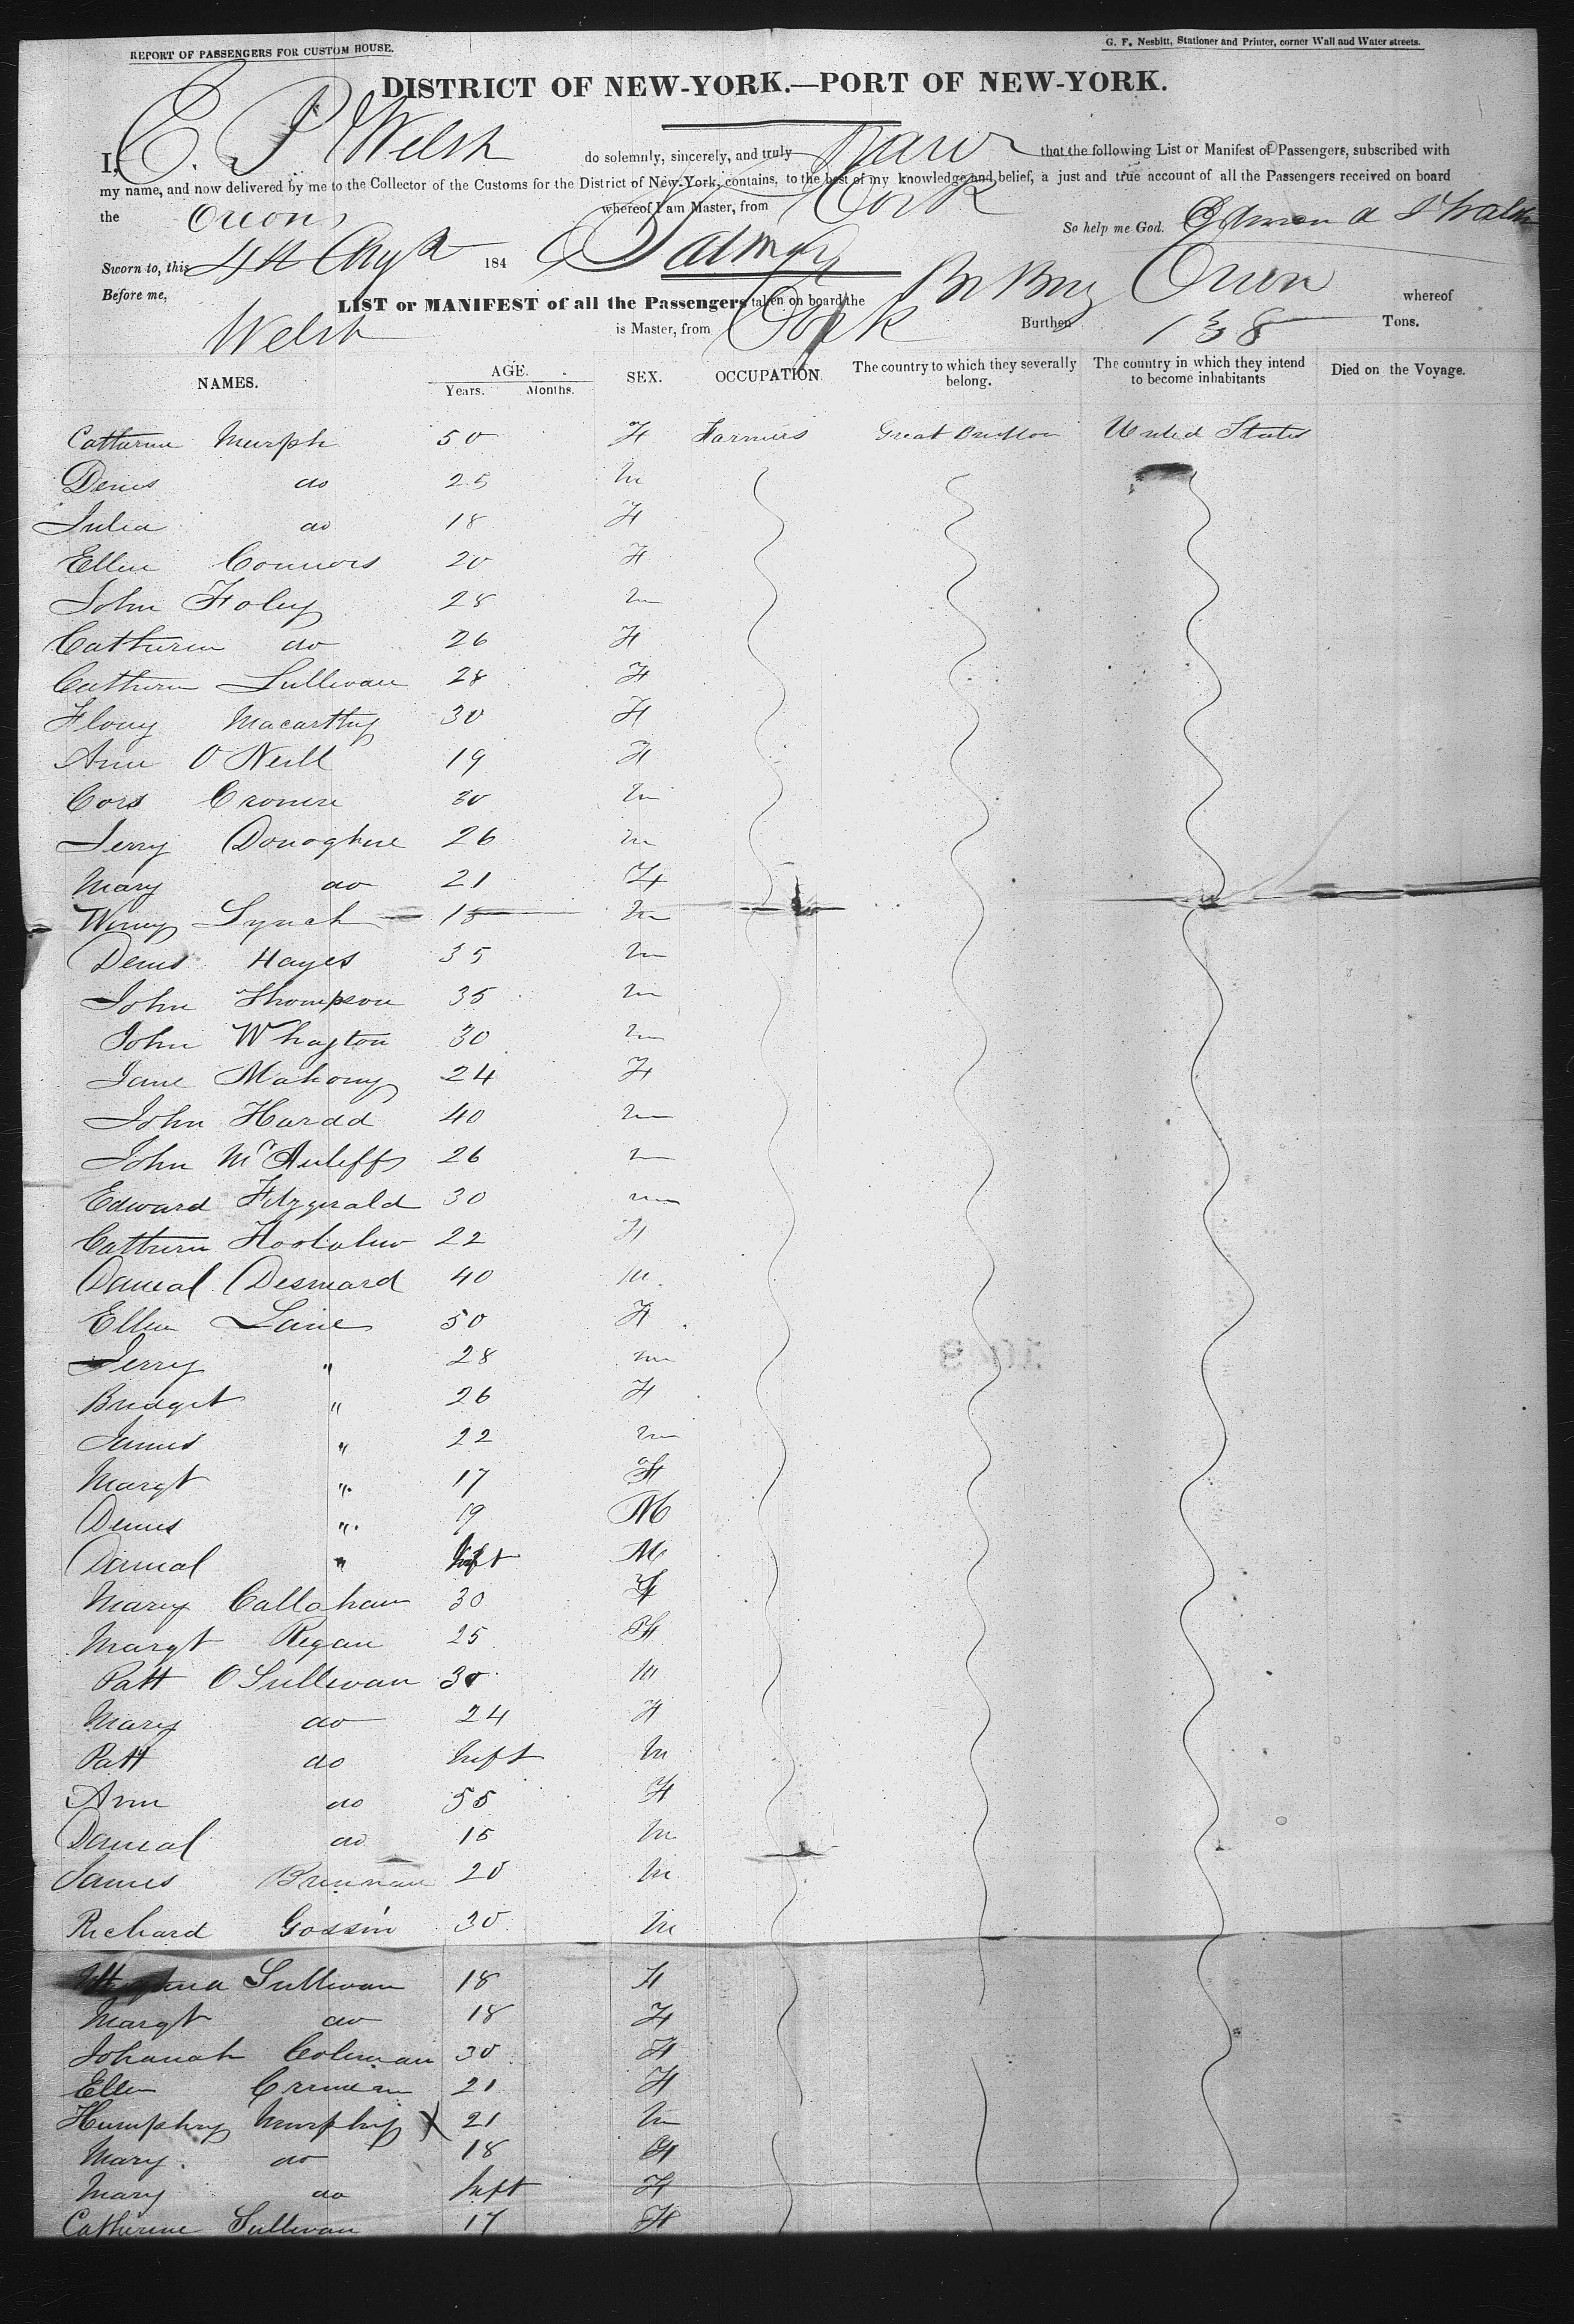 REPORT OF PASSENGERS FOR CUSTOM HOUSE.
G. F. Nesbitt, Stationer and Printer, corner Wall and Water streets.
DISTRICT OF NEW-YORK.—PORT OF NEW-YORK.
I, E. P Welsh do solemnly, sincerely, and truly that the following List or Manifest of Passengers, subscribed with
my name, and now delivered by me to the Collector of the Customs for the District of New-York, contains, to the best of my knowledge and belief, a just and true account of all the Passengers received on board
the Orion whereof I am Master, from Cork
So help me God.
Sworn to, this 4th Augt 184
Before me,
LIST or MANIFEST of all the Passengers taken on board the Br Brig Orion whereof
Welsh is Master, from Cork Burthen 138 Tons.
NAMES. AGE. Years. Months. SEX. OCCUPATION. The country to which they severally belong. The country in which they intend to become inhabitants Died on the Voyage.
Catherine Murph 50 F Farmers Great Britton United States
Denis do 25 M
Julia do 18 F
Ellen Connors 20 F
John Foley 28 M
Catherin do 26 F
Catherin Sullivan 28 F
Flory Macarthy 30 F
Ann O Neill 19 F
Cors 30 M
Jerry Donoghue 26 M
Mary do 21 F
Winy Lynch 18 M
Denis Hayes 35 M
John Thompson 35 M
John Whayton 30 M
Jane Mahony 24 F
John Hardd 40 M
John McAuliff 26 M
Edward Fitzgerald 30 M
Catherin 22 F
Daneal Desmard 40 M
Ellen Lane 50 F
Jerry " 28 M
Bridget " 26 F
James " 22 M
Margt " 17 F
Denis " 19 M
Daneal " Inft M
Mary Callahan 30 F
Margt Regan 25 F
Patt O Sullivan 30 M
Mary do 24 F
Patt do Inft M
Ann do 55 F
Daneal do 15 M
James Brennan 20 M
Richard Gossin 30 M
Sullivan 18 F
Margt do 18 F
Johanah Coleman 30 F
Ellen 21 F
Humphry Murphy X 21 M
Mary do 18 F
Mary do Inft F
Catherine Sullivan 17 F